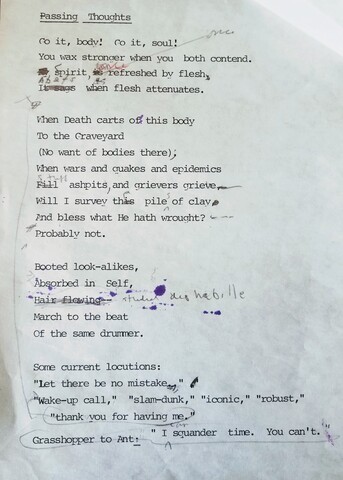 Passing Thoughts
Go it, body! Go it, soul!
You wax stronger when you both contend.
spirit refreshed by flesh,
when flesh attenuates.
When Death carts off this body
To the Graveyard
(No want of bodies there),
When wars and quakes and epidemics
Still
Fill ashpits, and grievers grieve,
Will I survey this pile of clay
And bless what He hath wrought?
Probably not.
Booted look-alikes,
Absorbed in Self,
Hair flowing studied deshabille
March to the beat
Of the same drummer.
Some current locutions:
"Let there be no mistake,"
"Wake-up call," "slam-dunk," "iconic," "robust,"
"thank you for having me."
Grasshopper to Ant: "I squander time. You can't."